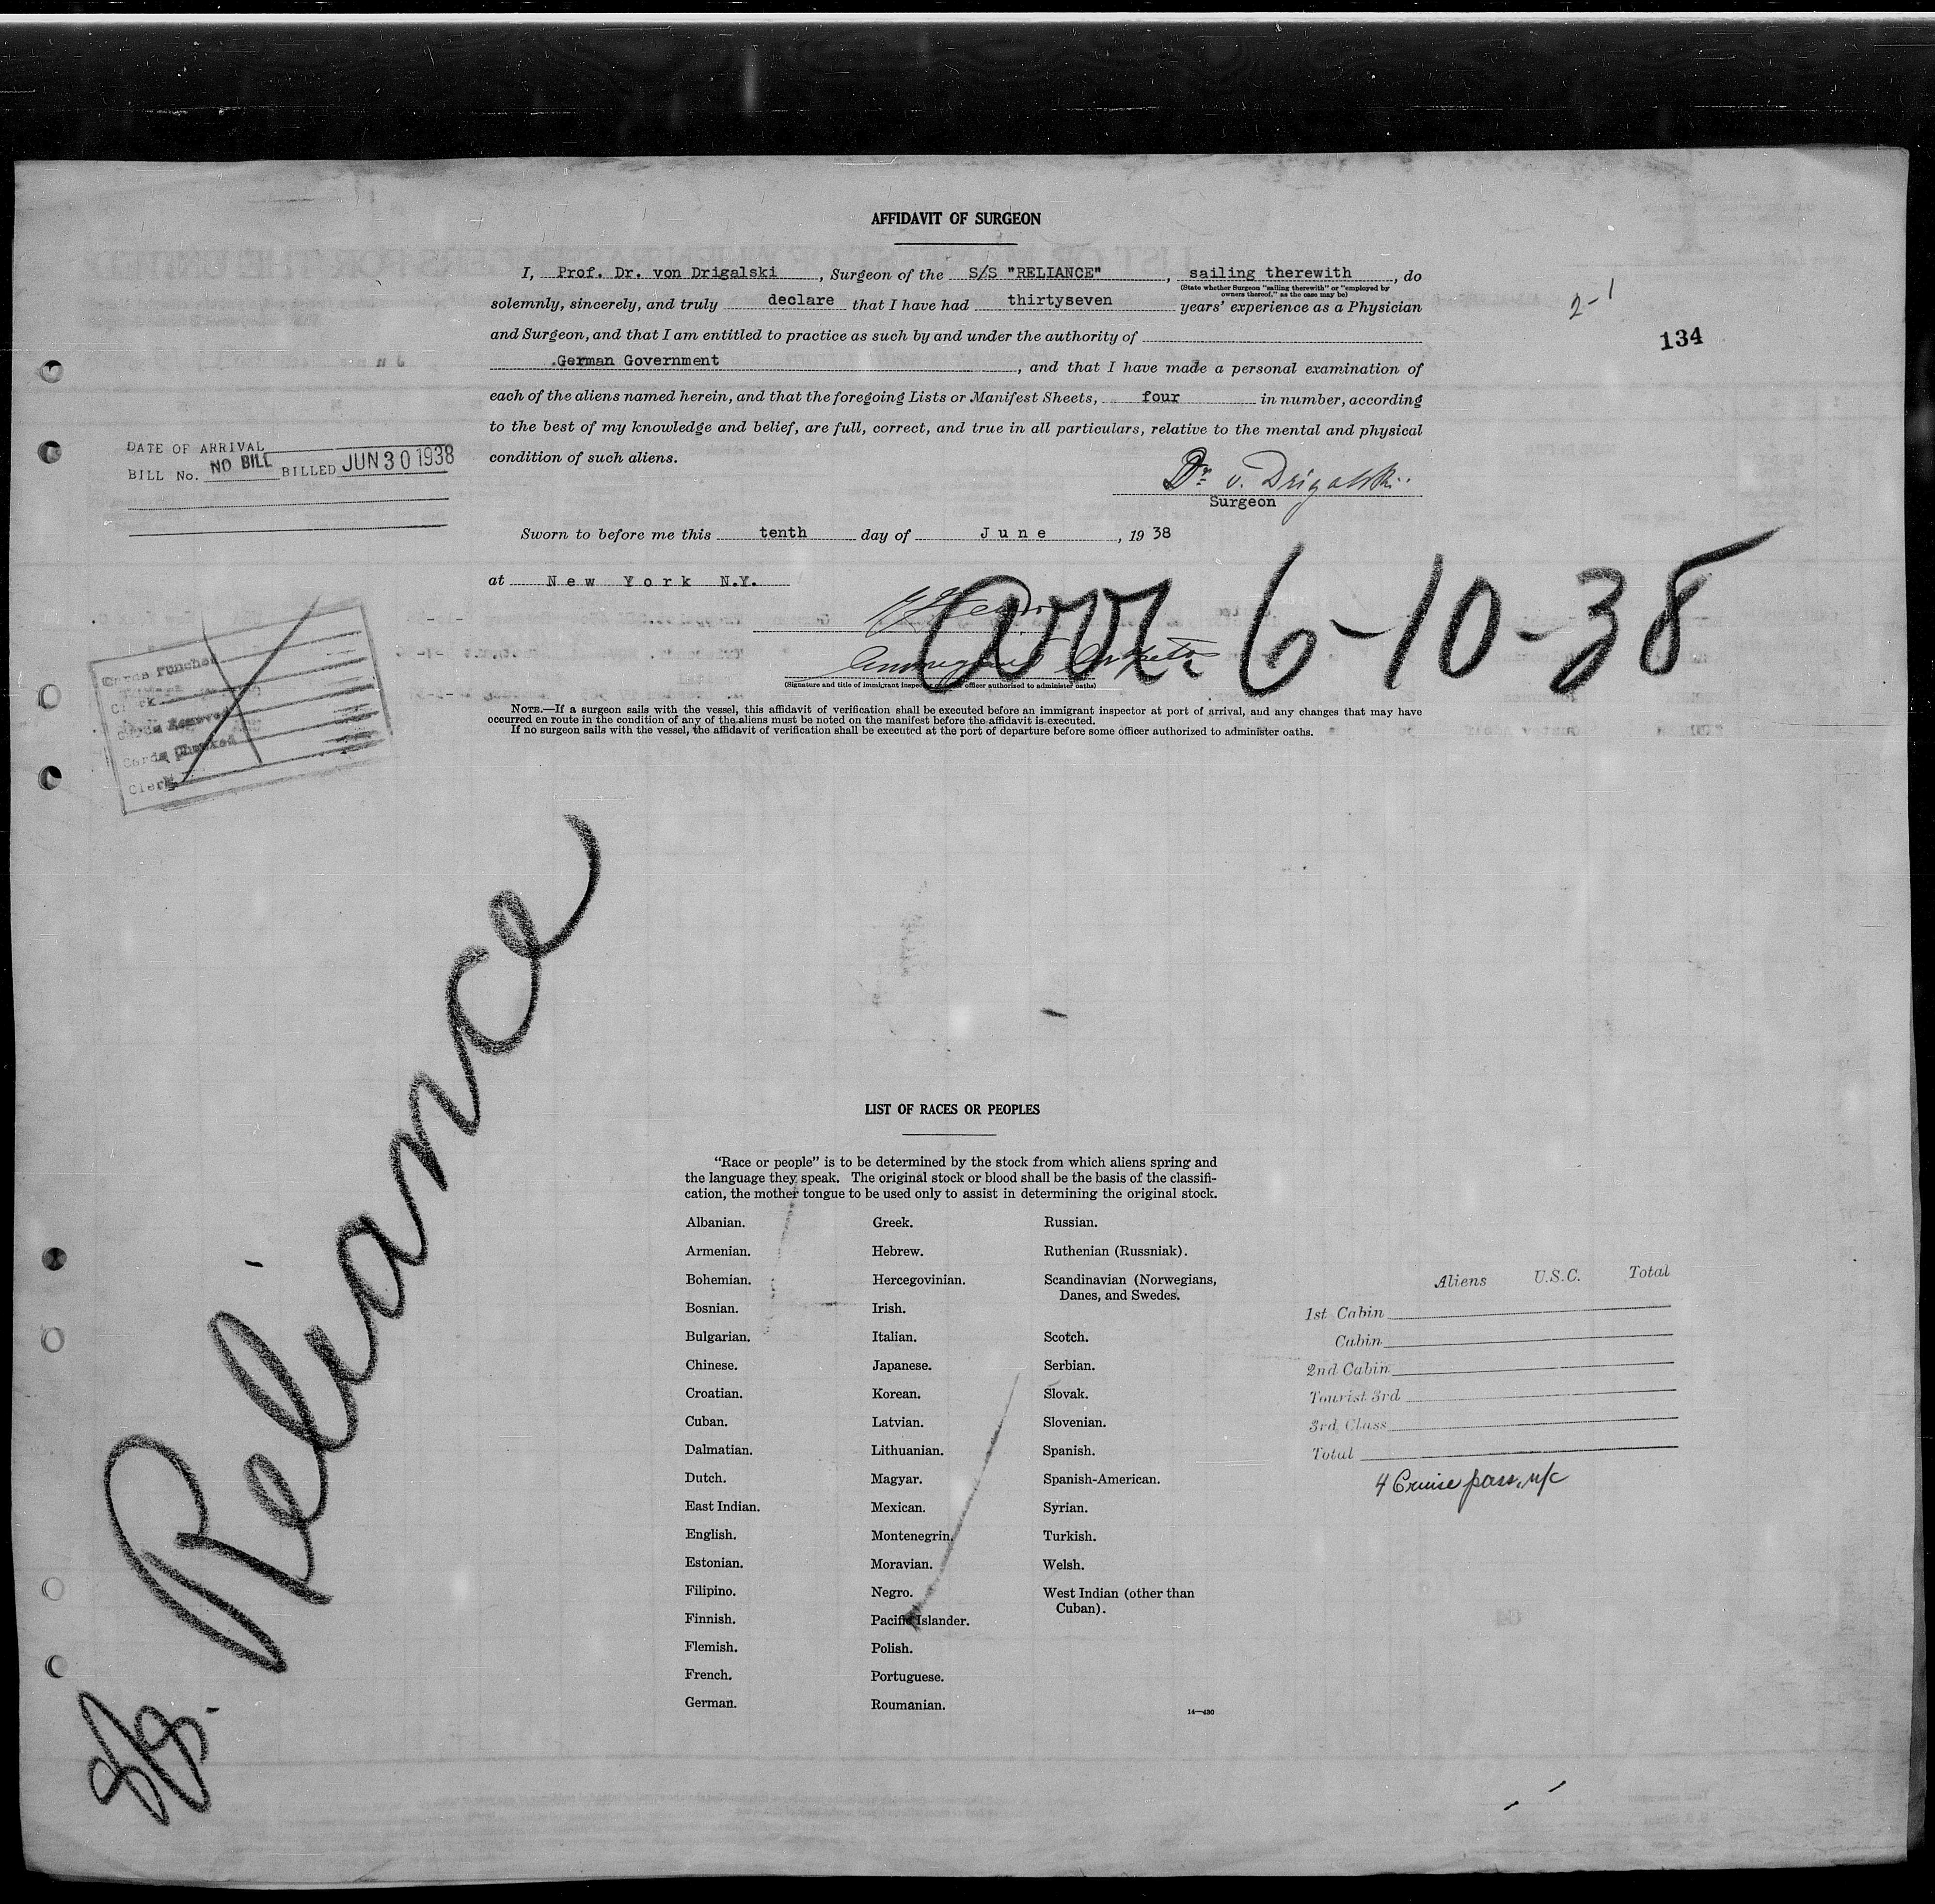 AFFIDAVIT OF SURGEON
I, Prof. Dr. von Drigalski, Surgeon of the S/S "RELIANCE", sailing therewith, do
(State whether Surgeon "sailing therewith" or "employed by
owners thereof," as the case may be)
solemnly, sincerely, and truly declare that I have had thirtyseven years' experience as a Physician
and Surgeon, and that I am entitled to practice as such by and under the authority of
German Government, and that I have made a personal examination of
each of the aliens named herein, and that the foregoing Lists or Manifest Sheets, four in number, according
to the best of my knowledge and belief, are full, correct, and true in all particulars, relative to the mental and physical
condition of such aliens.
2-1
134
DATE OF ARRIVAL
BILL No. NO BILL BILLED JUN 30 1938
Dr. v. Drigalski
Surgeon
Sworn to before me this tenth day of June, 1938
at New York N.Y.
arr. 6-10-38
(Signature and title of immigrant inspector or other officer authorized to administer oaths)
Cards Punched
Clerk
Cards Removed
Cards Checked
Clerk
NOTE.—If a surgeon sails with the vessel, this affidavit of verification shall be executed before an immigrant inspector at port of arrival, and any changes that may have
occurred en route in the condition of any of the aliens must be noted on the manifest before the affidavit is executed.
If no surgeon sails with the vessel, the affidavit of verification shall be executed at the port of departure before some officer authorized to administer oaths.
S/S. Reliance
LIST OF RACES OR PEOPLES
"Race or people" is to be determined by the stock from which aliens spring and
the language they speak. The original stock or blood shall be the basis of the classifi-
cation, the mother tongue to be used only to assist in determining the original stock.
Albanian.
Armenian.
Bohemian.
Bosnian.
Bulgarian.
Chinese.
Croatian.
Cuban.
Dalmatian.
Dutch.
East Indian.
English.
Estonian.
Filipino.
Finnish.
Flemish.
French.
German.
Greek.
Hebrew.
Hercegovinian.
Irish.
Italian.
Japanese.
Korean.
Latvian.
Lithuanian.
Magyar.
Mexican.
Montenegrin.
Moravian.
Negro.
Pacific Islander.
Polish.
Portuguese.
Roumanian.
Russian.
Ruthenian (Russniak).
Scandinavian (Norwegians,
Danes, and Swedes.
Scotch.
Serbian.
Slovak.
Slovenian.
Spanish.
Spanish-American.
Syrian.
Turkish.
Welsh.
West Indian (other than
Cuban).
14—430
Aliens U.S.C. Total
1st Cabin
Cabin
2nd Cabin
Tourist 3rd
3rd Class
Total
4 Cruise pass. n/c